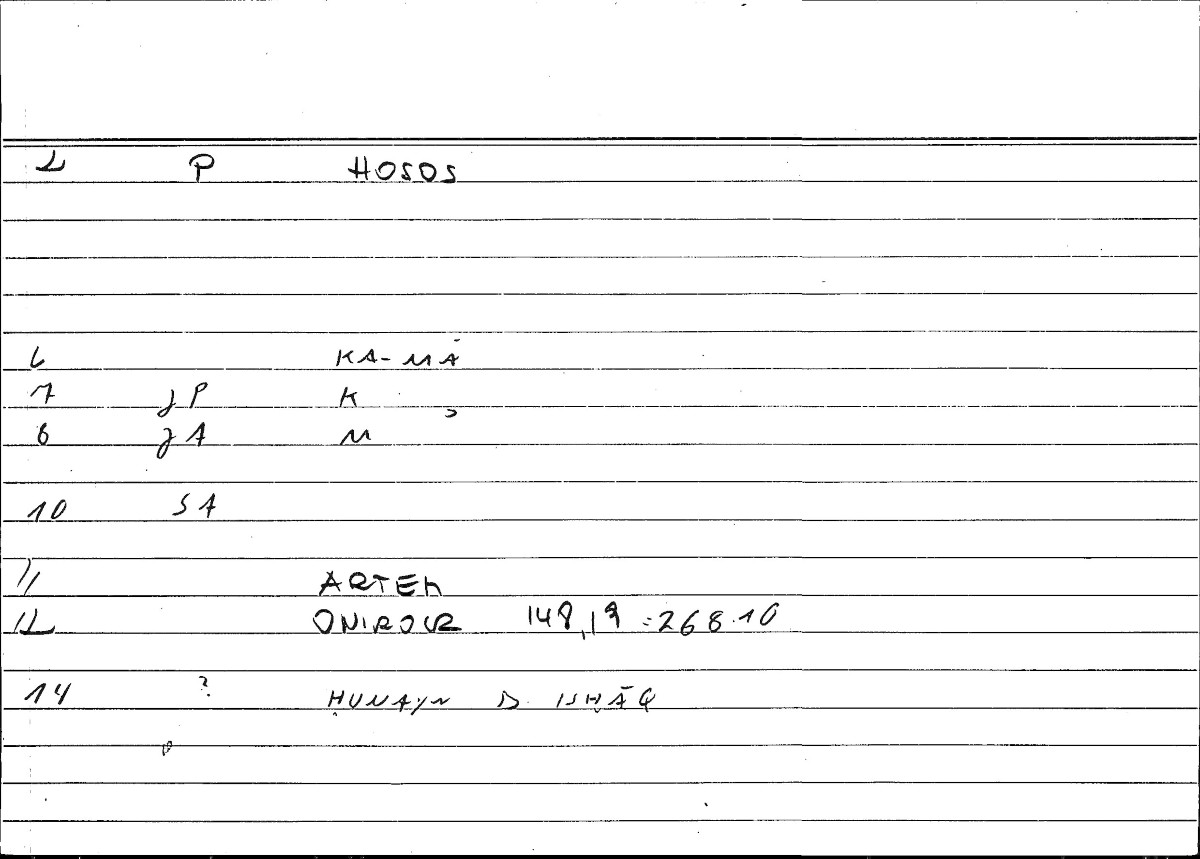 2 P HOSOS
6 KA-MĀ
7 JP K
8 JA M
10 SA
11 ARTEM
12 ONIROCR 148,19 =268.10
14 ? ḤUNAYN B. ISḤĀQ